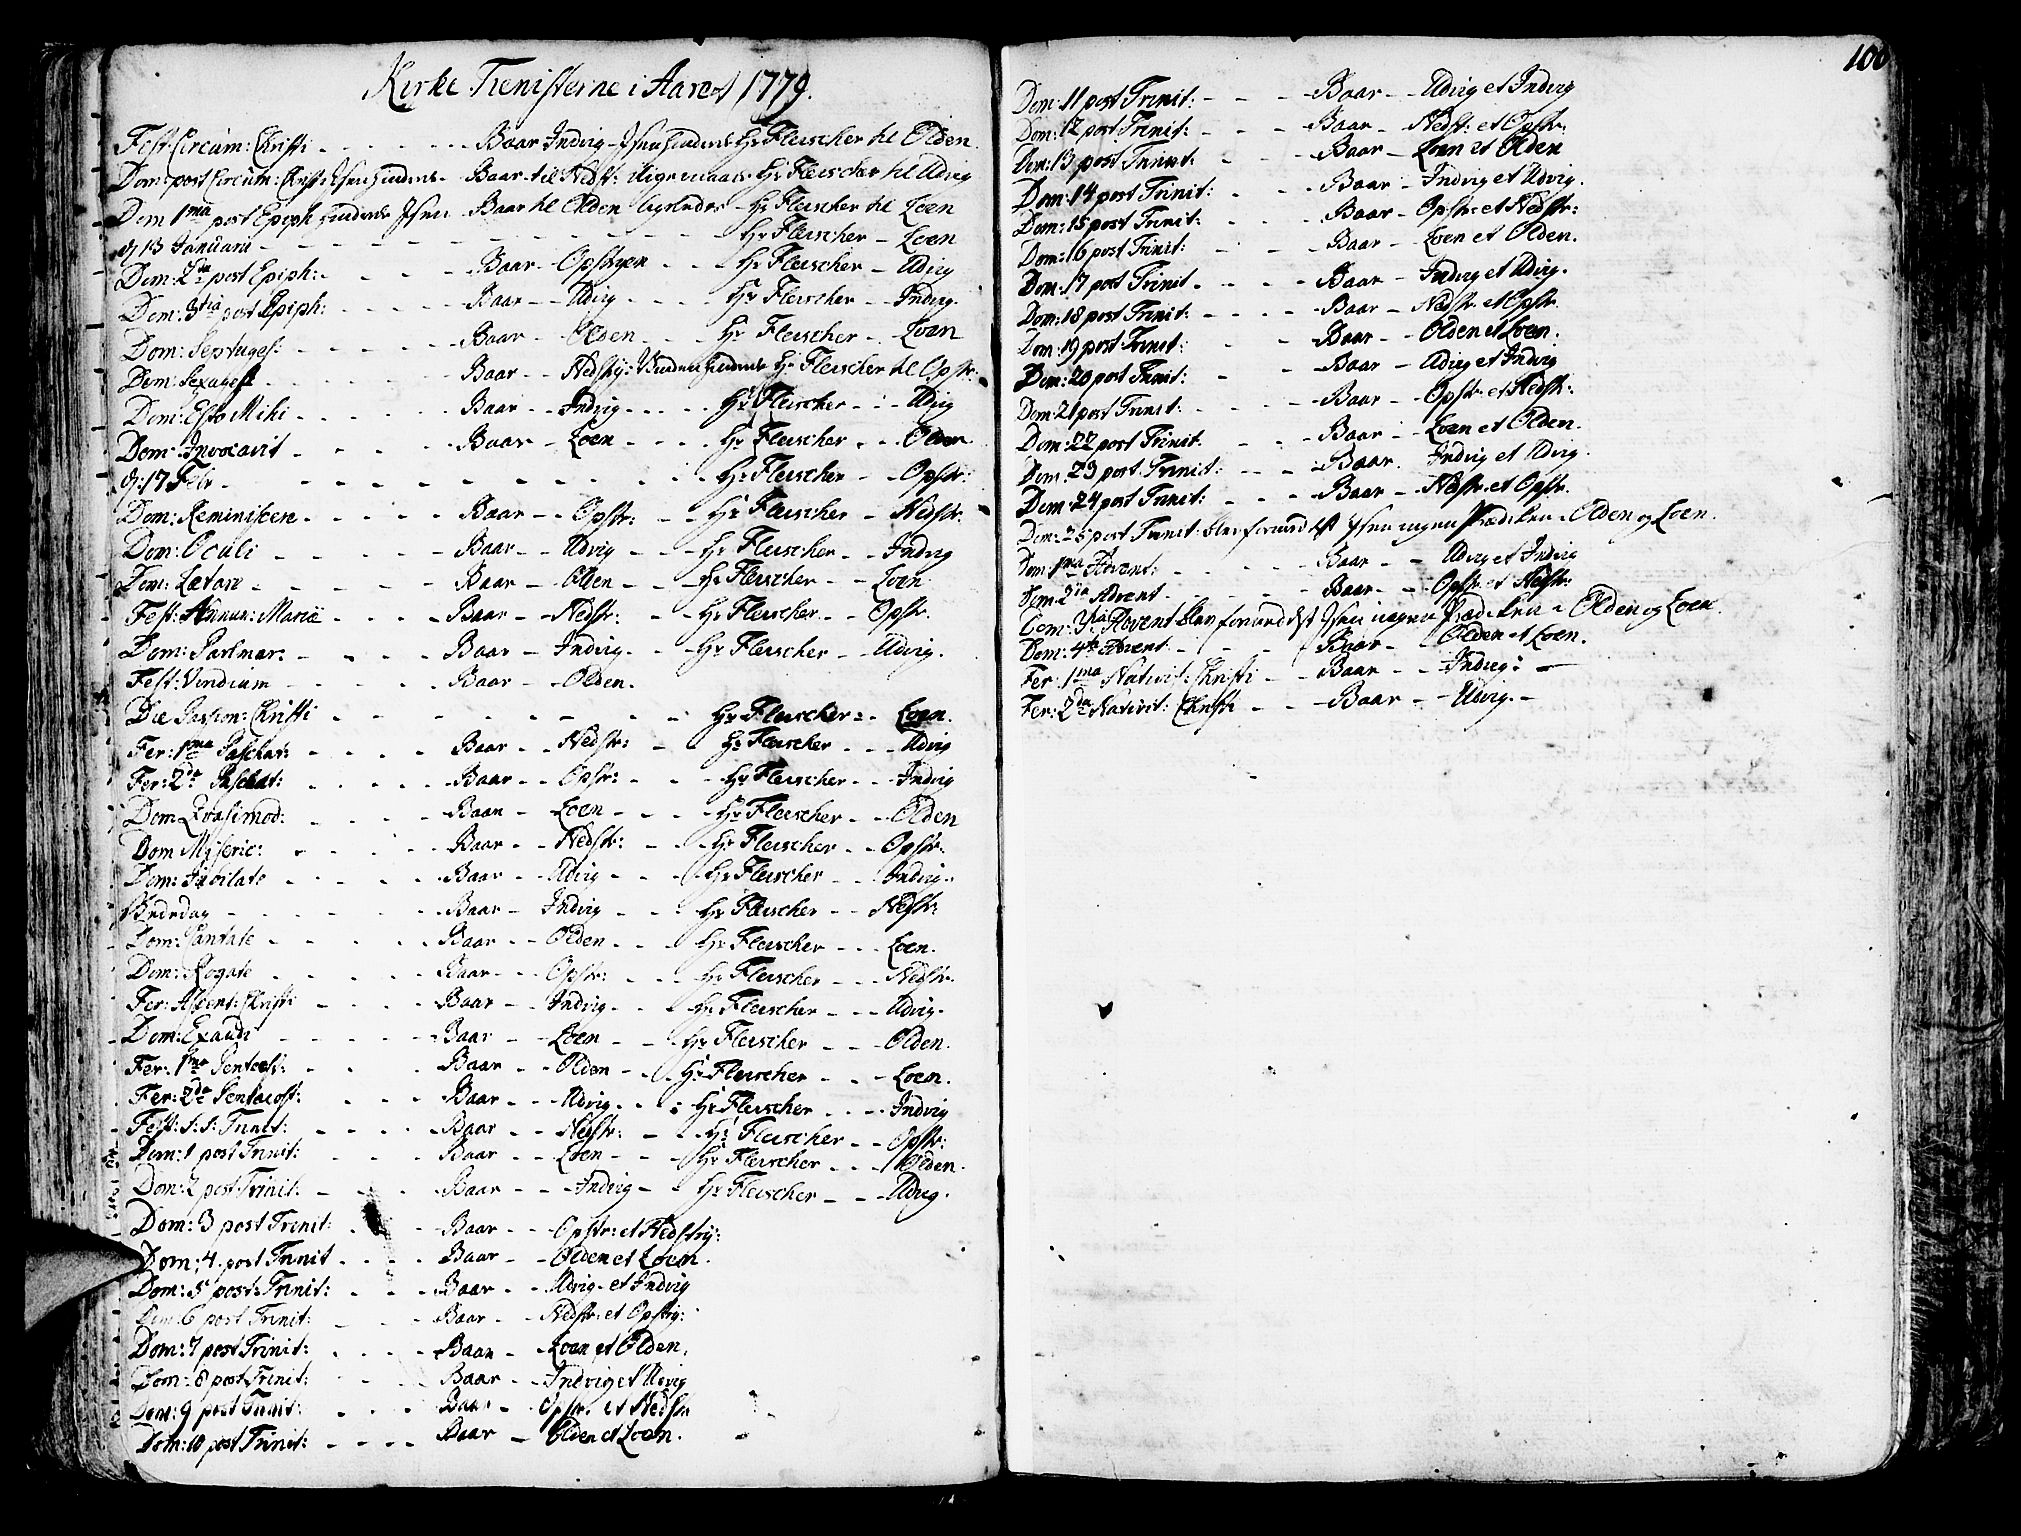 Kirke Tienisterne i Aaret 1779.
Fest: Circum: Christi - - - - - - Baar Indvig - Isen hindrede Hr Fleischer til Olden.
Dom: post Circum: Christi Isen hindrede - Baar til Nedst: ligemaade Hr Fleischer til Udvig
Dom 1ma post Epiph hindrede Isen Baar til Olden ligeledes - Hr Fleischer til Loen
d 13 Januarii - - - - - - - - - - - Hr Fleischer - Loen
Dom: 2da post Epiph: - - - - Baar - - Opstryen - - - Hr Fleischer - Udvig
Dom: 3tia post Epiph: - - - - Baar - - Udvig - - - - Hr Fleischer - - Indvig.
Dom: Septuges: - - - - - - Baar - - Olden - - - Hr Fleischer - - Loen
Dom: Sexages - - - - - - Baar - - Nedstry: hindrede Hr Fleischer til Opstr:
Dom: Esto Mihi - - - - - - Baar - - Indvig - - - - Hr Fleischer - - - Udvig
Dom: Invocavit - - - - Baar - Loen - - - - Hr Fleischer - - - Olden.
d: 17 Febr - - - - - - - - - - Hr Fleischer - - Opstr:
Dom: Reminiscere - - - - - Baar - - Opstr: - - Hr Fleischer - Nedstr:
Dom: Oculi - - - - - - Baar - - Udvig - - - Hr Fleischer - - Indvig
Dom: Lætare - - - - - - Baar - - Olden - - - Hr Fleischer - - Loen.
Fest: Annun: Mariæ - - - - Baar - - Nedstr: - - Hr Fleischer - - Opstr.
Dom: Palmar: - - - - Baar - - Indvig - - - Hr Fleischer - - Udvig.
Fest: Viridium - - - - - Baar - - Olden.
Die Passion: Christi - - - - - - - Hr Fleischer - - Loen.
Fer: 1ma Paschat: - - - - Baar - - Nedstr: - Hr Fleischer - - - Udvig
Fer: 2da Paschat: - - - - - Baar - - Opstr: - - - Hr Fleischer - - - Indvig
Dom Qvasimod: - - - - Baar - - Loen - - - - Hr Fleischer - - - Olden
Dom Miseric: - - - - Baar - - Nedstr: - - - Hr Fleischer - - Opstr.
Dom: Jubilate - - - - - Baar - - Udvig - - - Hr Fleischer - - Indvig.
Bededag - - - - - - Baar - Indvig - - - Hr Fleischer - - Nedstr:
Dom: Cantate - - - - - Baar - - Olden - - - Hr Fleischer - - - Loen.
Dom: Rogate - - - - - Baar - - - Opstr: - - - Hr Fleischer - - - Nedstr.
Fer: Ascent: Christi - - - - Baar - - Indvig - - - Hr Fleischer - - - Udvig.
Dom: Exaudi - - - - - Baar - - Loen - - - Hr Fleischer - - - Olden.
Fer: 1ma Pentcost: - - - Baar - - Olden - - - Hr Fleischer - - - Loen.
Fer: 2da Pentacost: - - - Baar - - Udvig - - - Hr Fleischer - - - Indvig
Fest: S: S: Trinit: - - - - Baar - - Nedstr: - - Hr Fleischer - - Opstr:
Dom: 1 post Trinit: - - - Baar - - Loen - - - Hr Fleischer - - - Olden.
Dom: 2 post Trinit: - - - Baar - - Indvig - Hr Fleischer - - Udvig.
Dom: 3 post Trinit: - - - Baar - - Opstr: et Nedstry:
Dom: 4 post Trinit - - - - Baar - - Olden et Loen.
Dom: 5 post Trinit: - - - Baar - - Udvig et Indvig
Dom 6 post Trinit: - - - Baar - - Nedstr: et Opstry:
Dom: 7 post Trinit: - - - - Baar - - Loen et Olden.
Dom: 8 post Trinit: - - - Baar - - Indvig et Udvig
Dom: 9 post Trinit: - - - Baar - Opstr: et Nedstr
Dom: 10 post Trinit: - - - - Baar - Olden et Loen.
100
Dom: 11 post Trinit: - - - Baar - - Udvig et Indvig
Dom: 12 post Trinit: - - - Baar - Nedst: et Opstr:
Dom: 13 post Trinit: - - - Baar - Loen et Olden
Dom: 14 post Trinit: - - - Baar - Indvig et Udvig.
Dom: 15 post Trinit: - - - Baar - Opstr: et Nedstr:
Dom: 16 post Trinit: - - - Baar - Loen et Olden.
Dom: 17 post Trinit - - - - Baar - Indvig et Udvig.
Dom: 18 post Trinit: - - - - Baar - Nedstr et Opstr.
Dom 19 post Trinit: - - - Baar - Olden et Loen.
Dom: 20 post Trinit: - - - Baar - Udvig et Indvig
Dom: 21 post Trinit: - - - - Baar - Opstr et Nedstr:
Dom: 22 post Trinit. - - - Baar - Loen et Olden.
Dom: 23 post Trinit: - - - Baar. Indvig et Udvig.
Dom: 24 post Trinit: - - - Baar - Nedstr. et Opstr.
Dom: 25 post Trinit: blev formedelst Isen ingen Prædiken i Olden og Loen.
Dom: 1ma Advent: - - - - - Baar - - Udvig et Indvig
Dom: 2da Advent - - - - - Baar - - Opstr: et Nedstr:
Dom: 3tia Advent blev formedelst Isen ingen Prædiken i Olden og Loen.
Dom: 4ta Advent - - - Baar - Olden et Loen.
Fer: 1ma Nativit: Christi - - Baar - - Indvig: -
Fer: 2da Nativit: Christi - - Baar - - Udvig. -